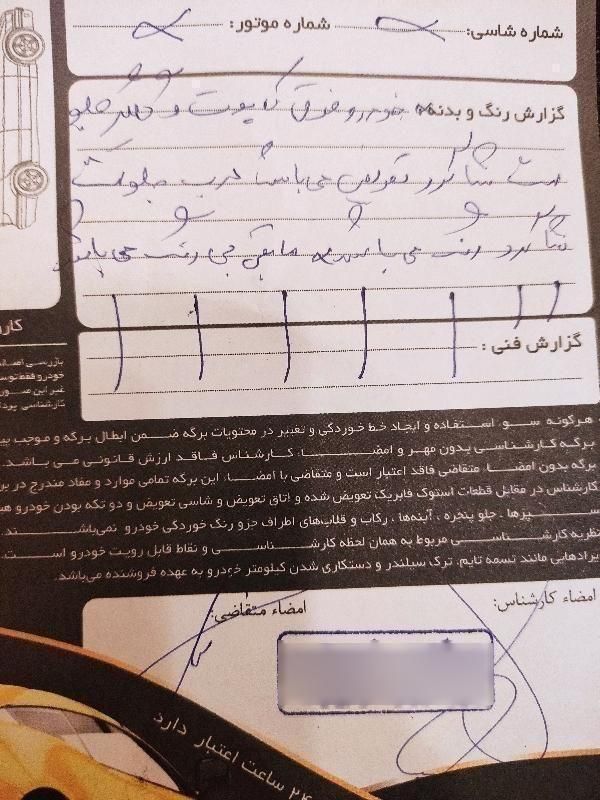 شماره شاسی: شماره موتور:
گزارش رنگ و بدنه: خودرو فوق کاپوت و گلگیر جلو
سمت شاگرد تعویض می باشد درب جلو
شاگرد رنگ می باشد مابقی بی رنگ می باشد
گزارش فنی:
کار
بازرسی
خودرو فقط
غیر این
کارشناسی
هرگونه سوء استفاده و ایجاد خط خوردگی و تغییر در محتویات برگه ضمن ابطال برگه و موجب
برگه کارشناسی بدون مهر و امضا، کارشناس فاقد ارزش قانونی می باشد.
برگه بدون امضا متقاضی فاقد اعتبار است و متقاضی با امضا، این برگه تمامی موارد و مفاد مندرج در
کارشناس در مقابل قطعات استوک فابریک تعویض شده و اتاق تعویض و شاسی تعویض و دو تکه بودن خودرو
جلو پنجره، آینه‌ها، رکاب و قلاب‌های اطراف جزو رنگ خوردگی خودرو نمی‌باشند.
نظریه کارشناسی مربوط به همان لحظه کارشناسی و نقاط قابل رویت خودرو است.
ایرادهایی مانند تسمه تایم، ترک سیلندر و دستکاری شدن کیلومتر خودرو به عهده فروشنده می‌باشد.
امضاء کارشناس: امضاء متقاضی:
۲۴ ساعت اعتبار دارد